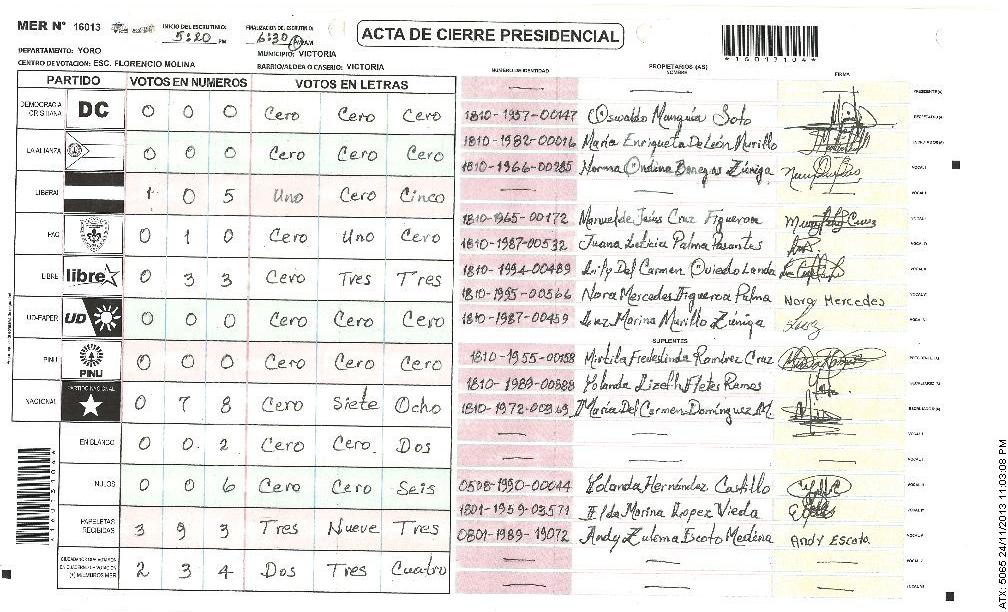 MER N° 16013
INICIO DEL ESCRUTINIO: 5:20 PM
FINALIZACION DEL ESCRUTINIO: 6:30
ACTA DE CIERRE PRESIDENCIAL
*16013104*
DEPARTAMENTO: YORO
MUNICIPIO: VICTORIA
CENTRO DE VOTACION: ESC. FLORENCIO MOLINA
BARRIO/ALDEA O CASERIO: VICTORIA
PARTIDO VOTOS EN NUMEROS VOTOS EN LETRAS
DEMOCRACIA CRISTIANA DC 0 0 0 Cero Cero Cero
LA ALIANZA 0 0 0 Cero Cero Cero
LIBERAL 1 0 5 Uno Cero Cinco
PAC 0 1 0 Cero Uno Cero
LIBRE libre 0 3 3 Cero Tres Tres
UD-FAPER UD 0 0 0 Cero Cero Cero
PINU PINU 0 0 0 Cero Cero Cero
NACIONAL PARTIDO NACIONAL 0 7 8 Cero Siete Ocho
EN BLANCO 0 0 2 Cero Cero Dos
NULOS 0 0 6 Cero Cero Seis
PAPELETAS RECIBIDAS 3 9 3 Tres Nueve Tres
2 3 4 Dos Tres Cuatro
NUMERO DE IDENTIDAD PROPIETARIOS (AS) NOMBRE FIRMA
1810-1957-00147 Oswaldo Munguia Soto
1810-1982-00016 Maria Enriqueta De León Murillo
1810-1966-00285 Norma Ondina Banegas Zúniga
1810-1965-00172 Manuel de Jesus Cruz Figueroa
1810-1987-00532 Juana Leticia Palma
1810-1994-00489 Del Carmen Oviedo Landa
1810-1995-00566 Nora Mercedes Figueroa Palma Nora Mercedes
1810-1987-00459 Luz Marina Murillo Zúniga Luz
SUPLENTES
1810-1955-00158 Mirtila Fredeslinda Ramirez Cruz
1810-1989-00888 Yolanda Lizeth Fletes Ramos
1810-1972-00369 Maria Del Carmen Domínguez M.
0508-1990-00044 Yolanda Hernández Castillo
1801-1959-03571 Elda Marina Lopez Vieda
0801-1989-19072 Andy Zulema Escoto Medina Andy Escoto
ATX-5065 24/11/2013 11:03:08 PM